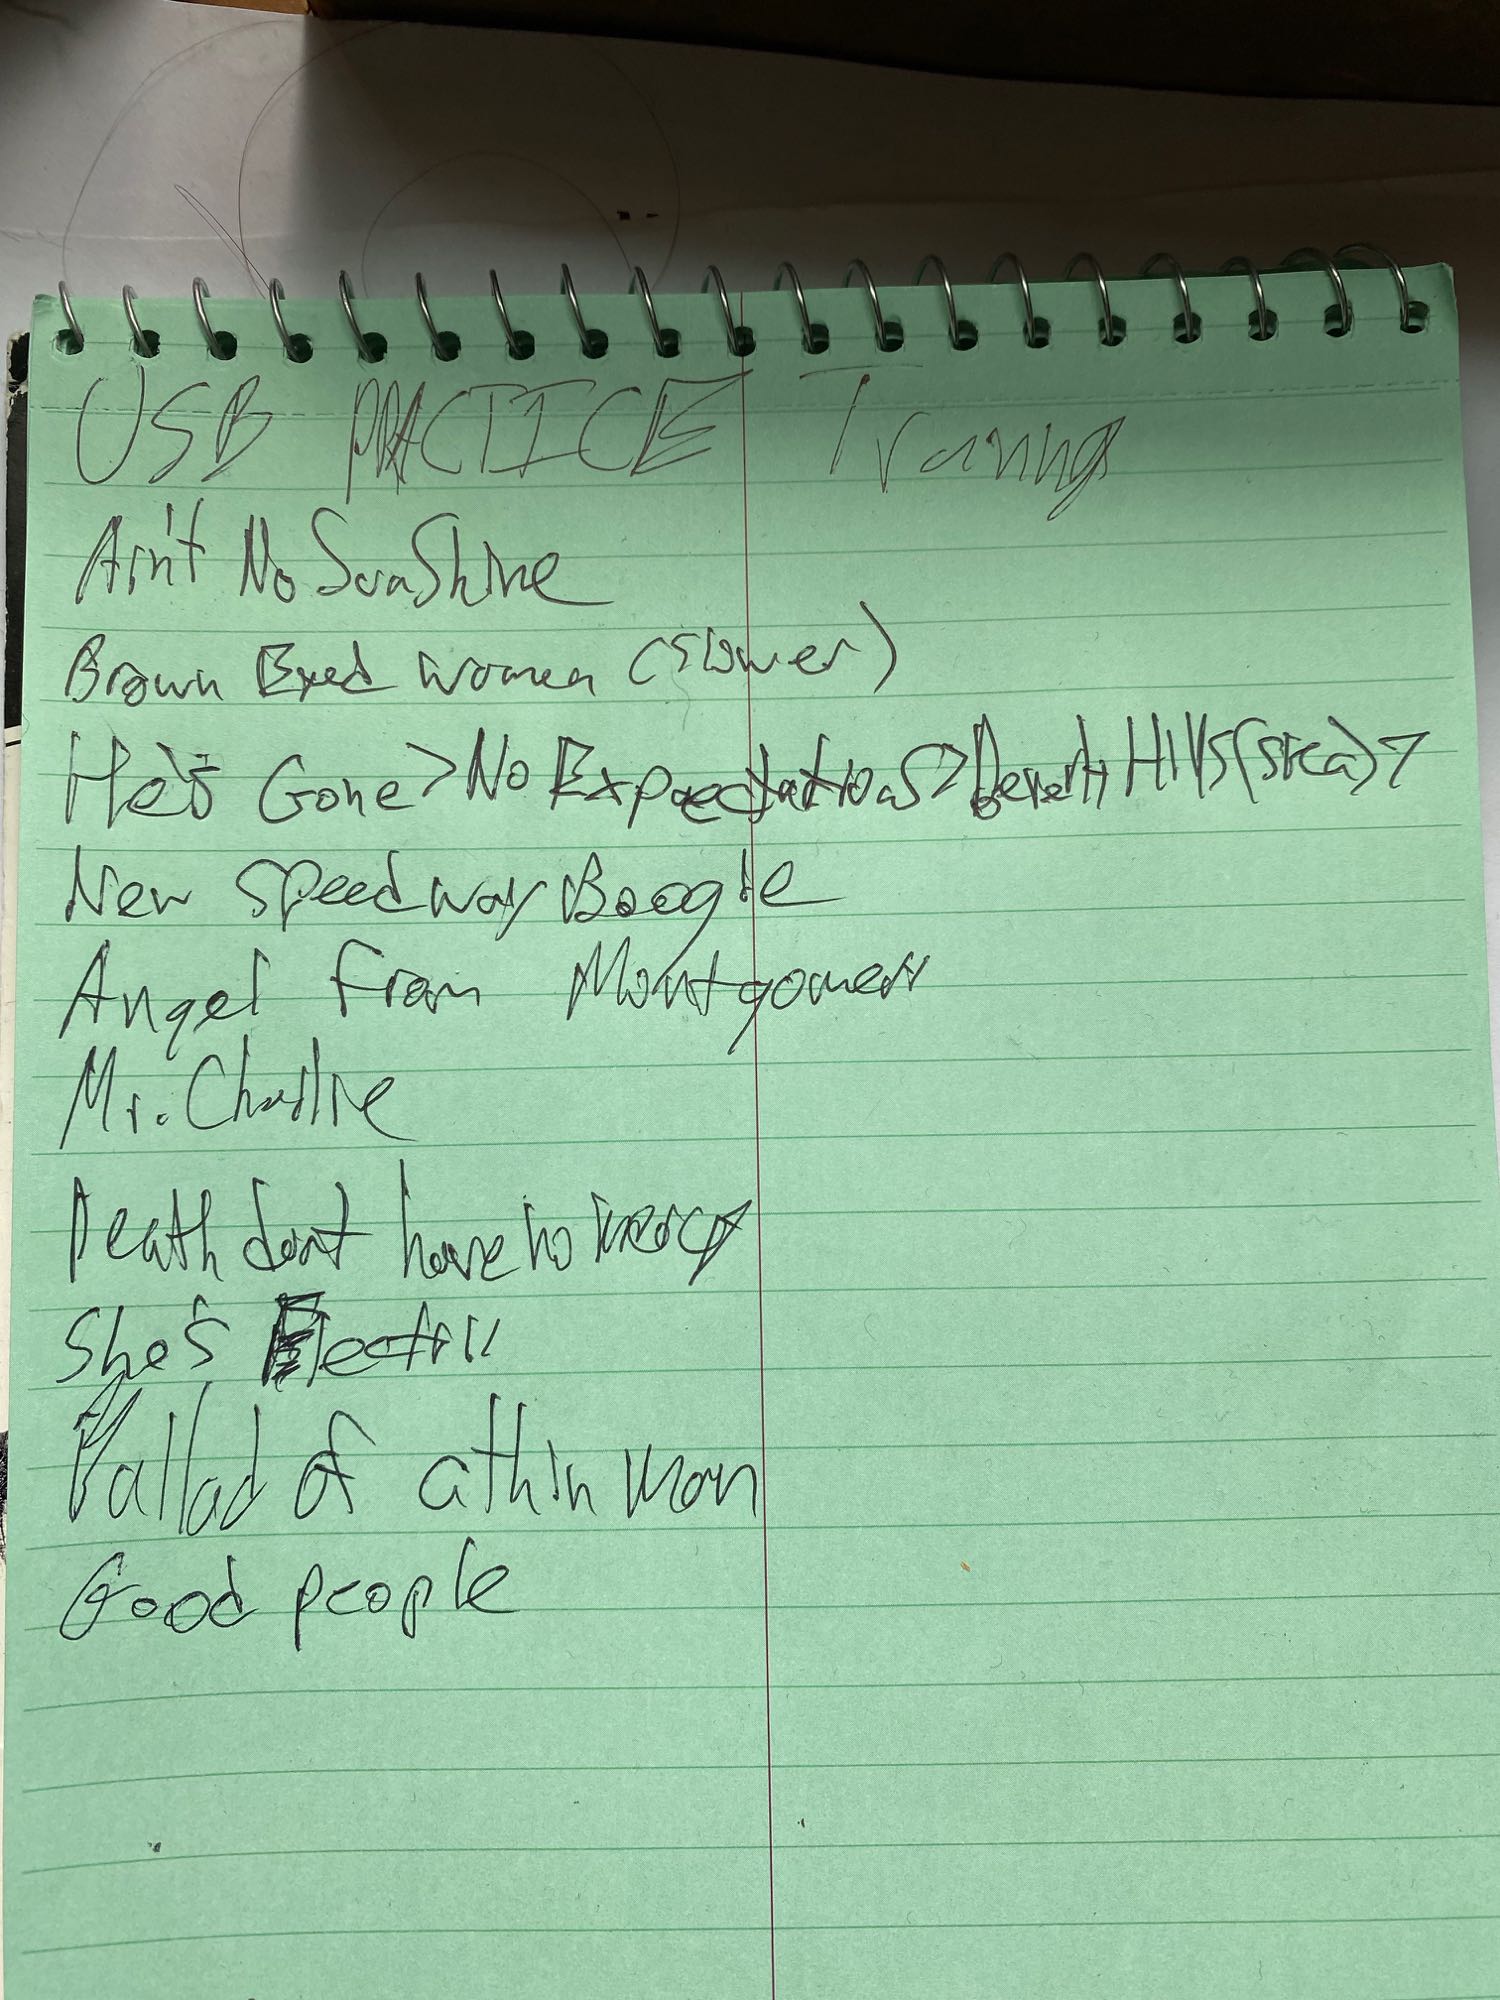 USB PRACTICE Training
Ain't No Sunshine
Brown Eyed women (slower)
He's Gone > No Expectations > Beverly Hills (ska) >
New Speedway Boogie
Angel from Montgomery
Mr. Charlie
Death dont have no mercy
She's Electric
Ballad of a thin man
Good people